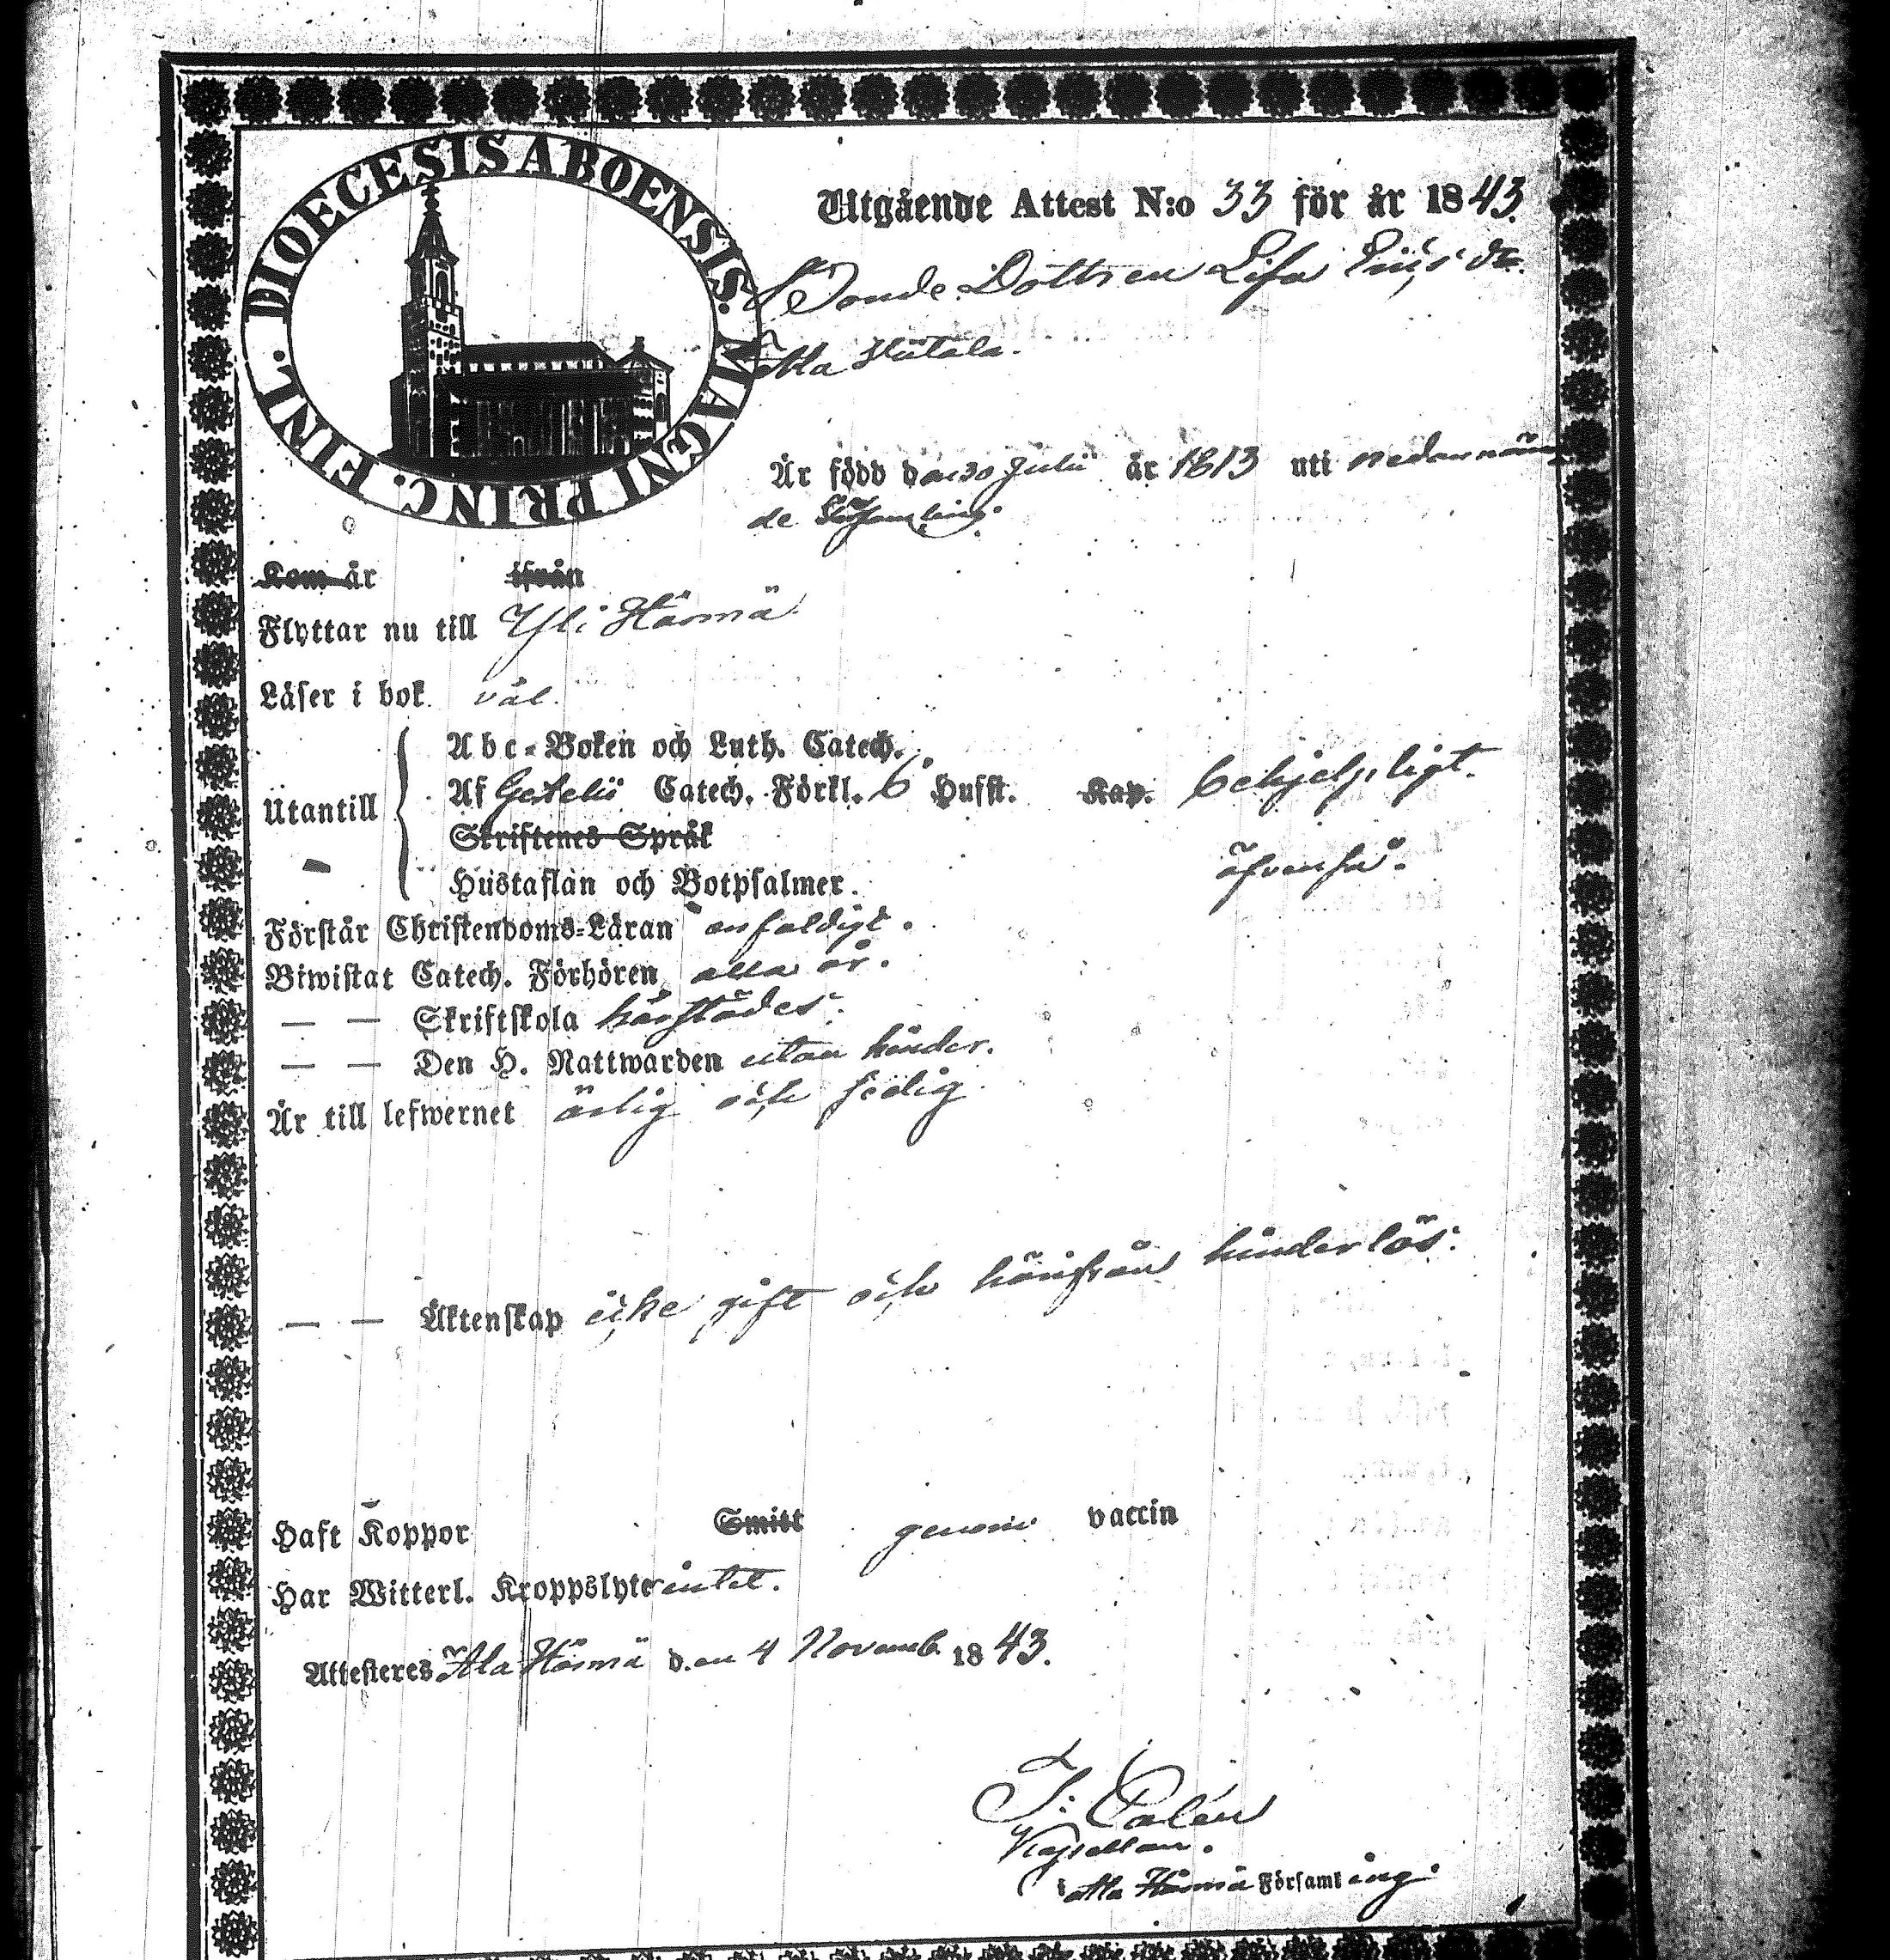 DIOECESIS ABOENSIS. MAGNI PRINC. FINL.
Utgående Attest N:o 33 för år 1843.
Bonde Dottren Lisa Eriks dr.
Ala Hütala.
Är född den 30 Julii år 1813 uti nedannämn
de Församling.
Kom år ifrån
Flyttar nu till Yli Härmä
Läser i bok väl.
Utantill
Abc-Boken och Luth. Catech.
Af Gezelii Catech. Förkl. 6 Hufst. Kap. behjelpligt.
Skriftenes Språk
Hustaflan och Botpsalmer. äfvenså.
Förstår Christendoms-Läran enfaldigt.
Biwistat Catech. Förhören alla år.
— — Skriftskola härstädes.
— — Den H. Nattwarden utan hinder.
Är till lefwernet ärlig och sedig
— — Äktenskap icke gift och härifrån hinderlös.
Haft Koppor Smitt genom vaccin
Har Witterl. Kroppslyte intet.
Attesteres Ala Härmä d.en 4 Novemb. 1843.
Kapellan.
i Ala Härmä Församling.